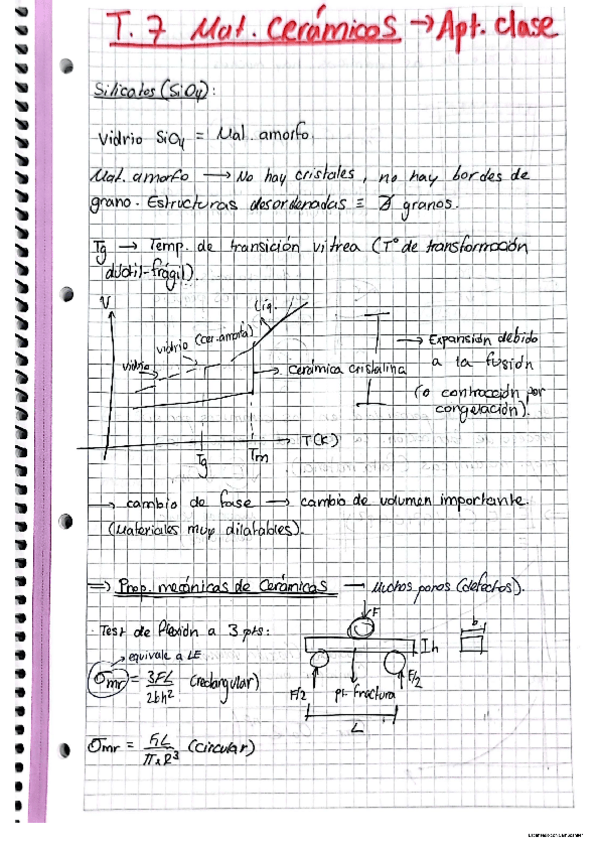 T.7 Mat. Cerámicos → Apt. clase
Silicatos (SiO4):
Vidrio SiO4 = Mal. amorfo.
Mat. amorfo → No hay cristales, no hay bordes de
grano. Estructuras desordenadas ≡ ∄ granos.
Tg → Temp. de transición vítrea (Tº de transformación
dúctil-frágil).
V
Líq.
vidrio (cer. amorfa)
vidrio
→ Cerámica cristalina
→ Expansión debido
a la fusión
(o contracción por
congelación).
T(K)
Tg
Tm
→ cambio de fase → cambio de volumen importante.
(Materiales muy dilatables).
⇒ Prop. mecánicas de Cerámicas → Muchos poros (defectos).
· Test de Flexión a 3 pts:
→ equivale a LE
σmr = 3FL / 2bh² (rectangular)
F
h
b
F/2
pt. fractura
F/2
L
σmr = FL / π·R³ (circular)